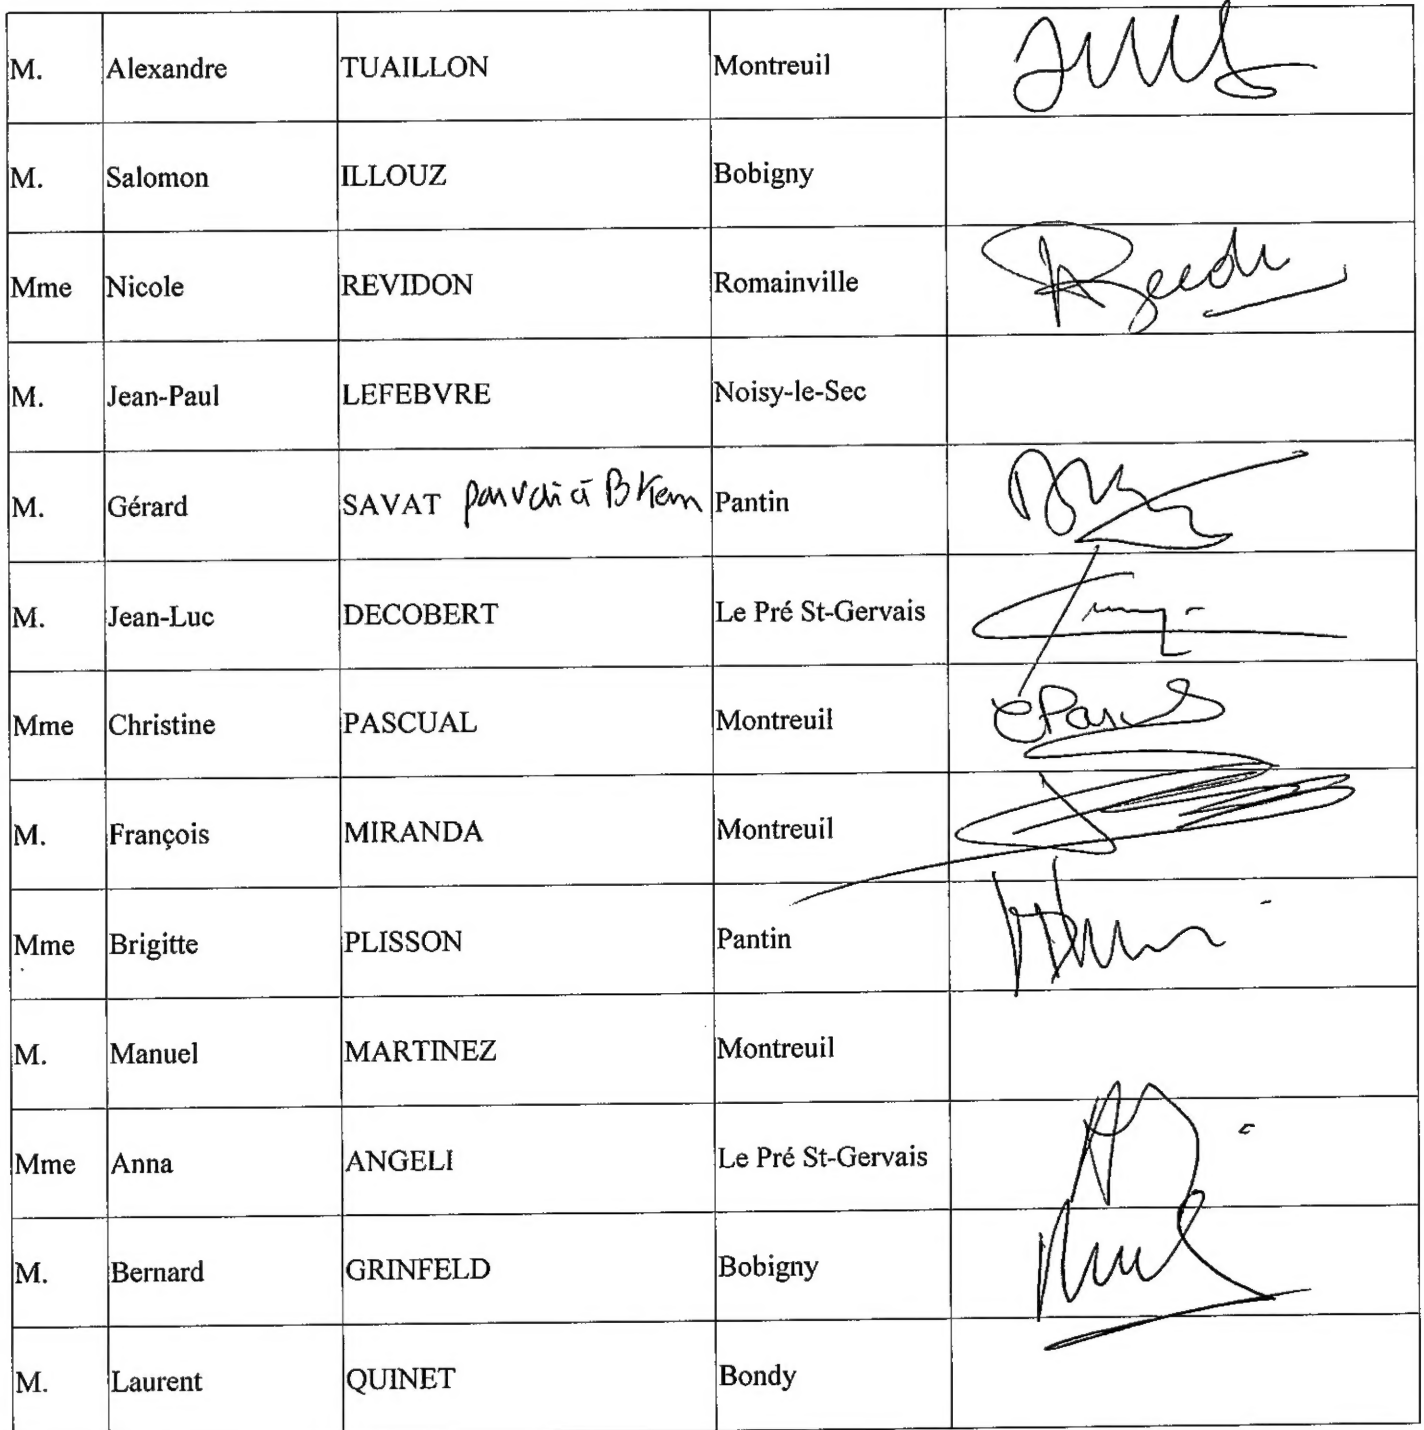 M. Alexandre TUAILLON Montreuil
M. Salomon ILLOUZ Bobigny
Mme Nicole REVIDON Romainville
M. Jean-Paul LEFEBVRE Noisy-le-Sec
M. Gérard SAVAT à Pantin
M. Jean-Luc DECOBERT Le Pré St-Gervais
Mme Christine PASCUAL Montreuil
M. François MIRANDA Montreuil
Mme Brigitte PLISSON Pantin
M. Manuel MARTINEZ Montreuil
Mme Anna ANGELI Le Pré St-Gervais
M. Bernard GRINFELD Bobigny
M. Laurent QUINET Bondy